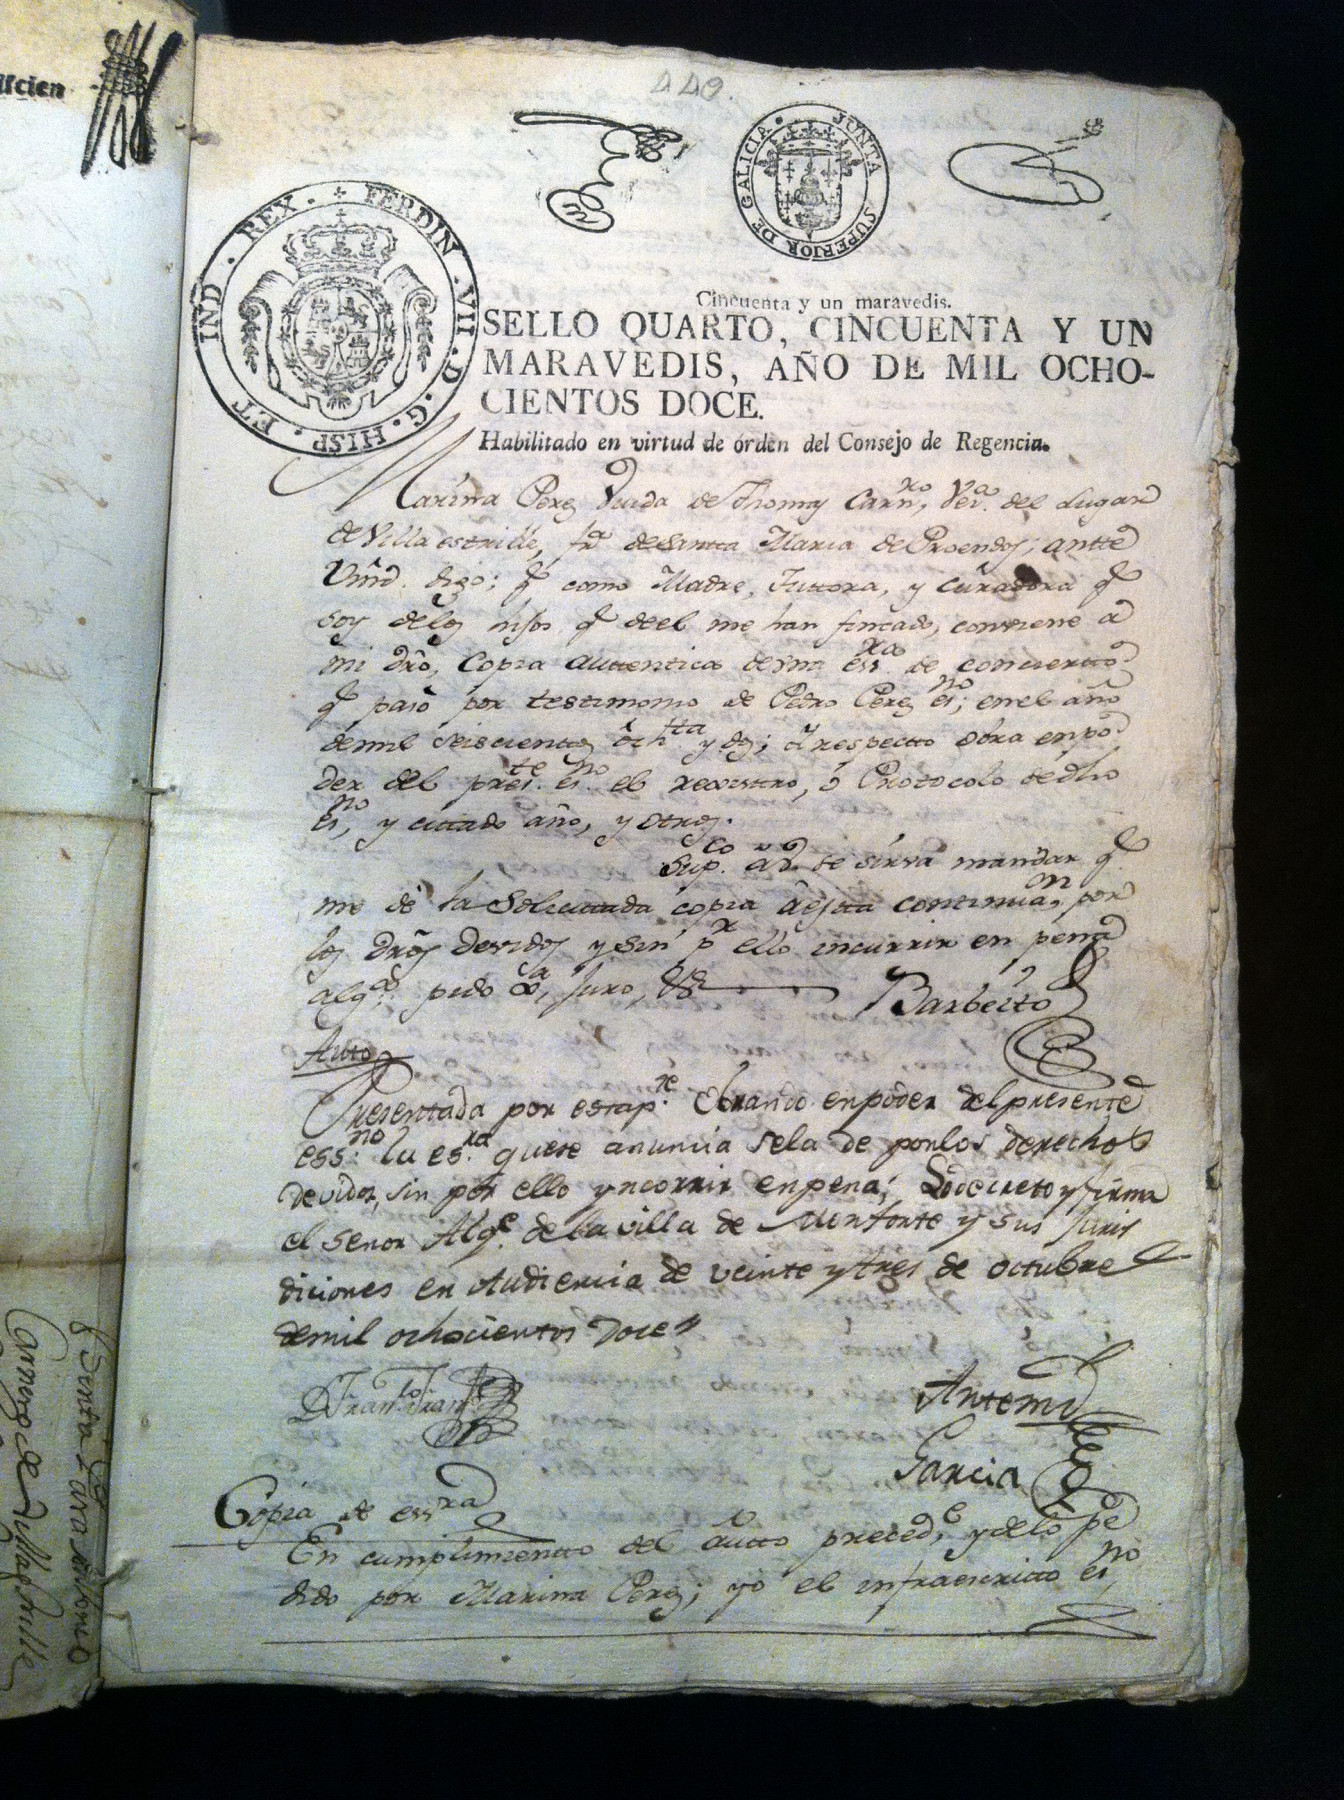 440.
JUNTA SUPERIOR DE GALICIA
FERDIN . VII . D . G . HISP . ET IND . REX .
Cincuenta y un maravedis.
SELLO QUARTO, CINCUENTA Y UN
MARAVEDIS, AÑO DE MIL OCHO-
CIENTOS DOCE.
Habilitado en virtud de órden del Consejo de Regencia.
Marina Perez Viuda de Thomas Carnro, Veza. del Lugar
de Villaestrille, fra de Santta Maria de Proendos; antte
Vmd. digo; qe como Madre, Tuttora, y Curadora qe
soy delos hijos qe deel me han fincado, conviene a
mi dro, Copia auttentica de una essra de concierto
qe paso por testimonio de Pedro Perez esno; enel año
demil seiscientos ochta y dos; qe respectto obra enpo
der del preste esno el rexistro, o Prottocolo de dho
esno, y cittado año, y otros.
Supco a V. se sirva mandar qe
me dé la Solicittada copia á estta continuaon, por
los dros devidos y sin pr ello incurrir en pena
alga; pido Jusa, Juro, &a
Barbeito
Auto
Presentada por estapte Obrando enpoder delpresente
essno la esra quese anuncia sela de porlos derechos
devidos, sin por ello yncorrir enpena; Lodecreto y firma
el senor Alge de la villa de Monforte y sus Juris
diciones en Audiencia de veinte y tres de octubre
demil ochocientos doce
Antemi
Garcia
Copia de essra
En cumplimientto del autto precede, ydelo pe
dido por Marina Perez; yo el infraescritto esno